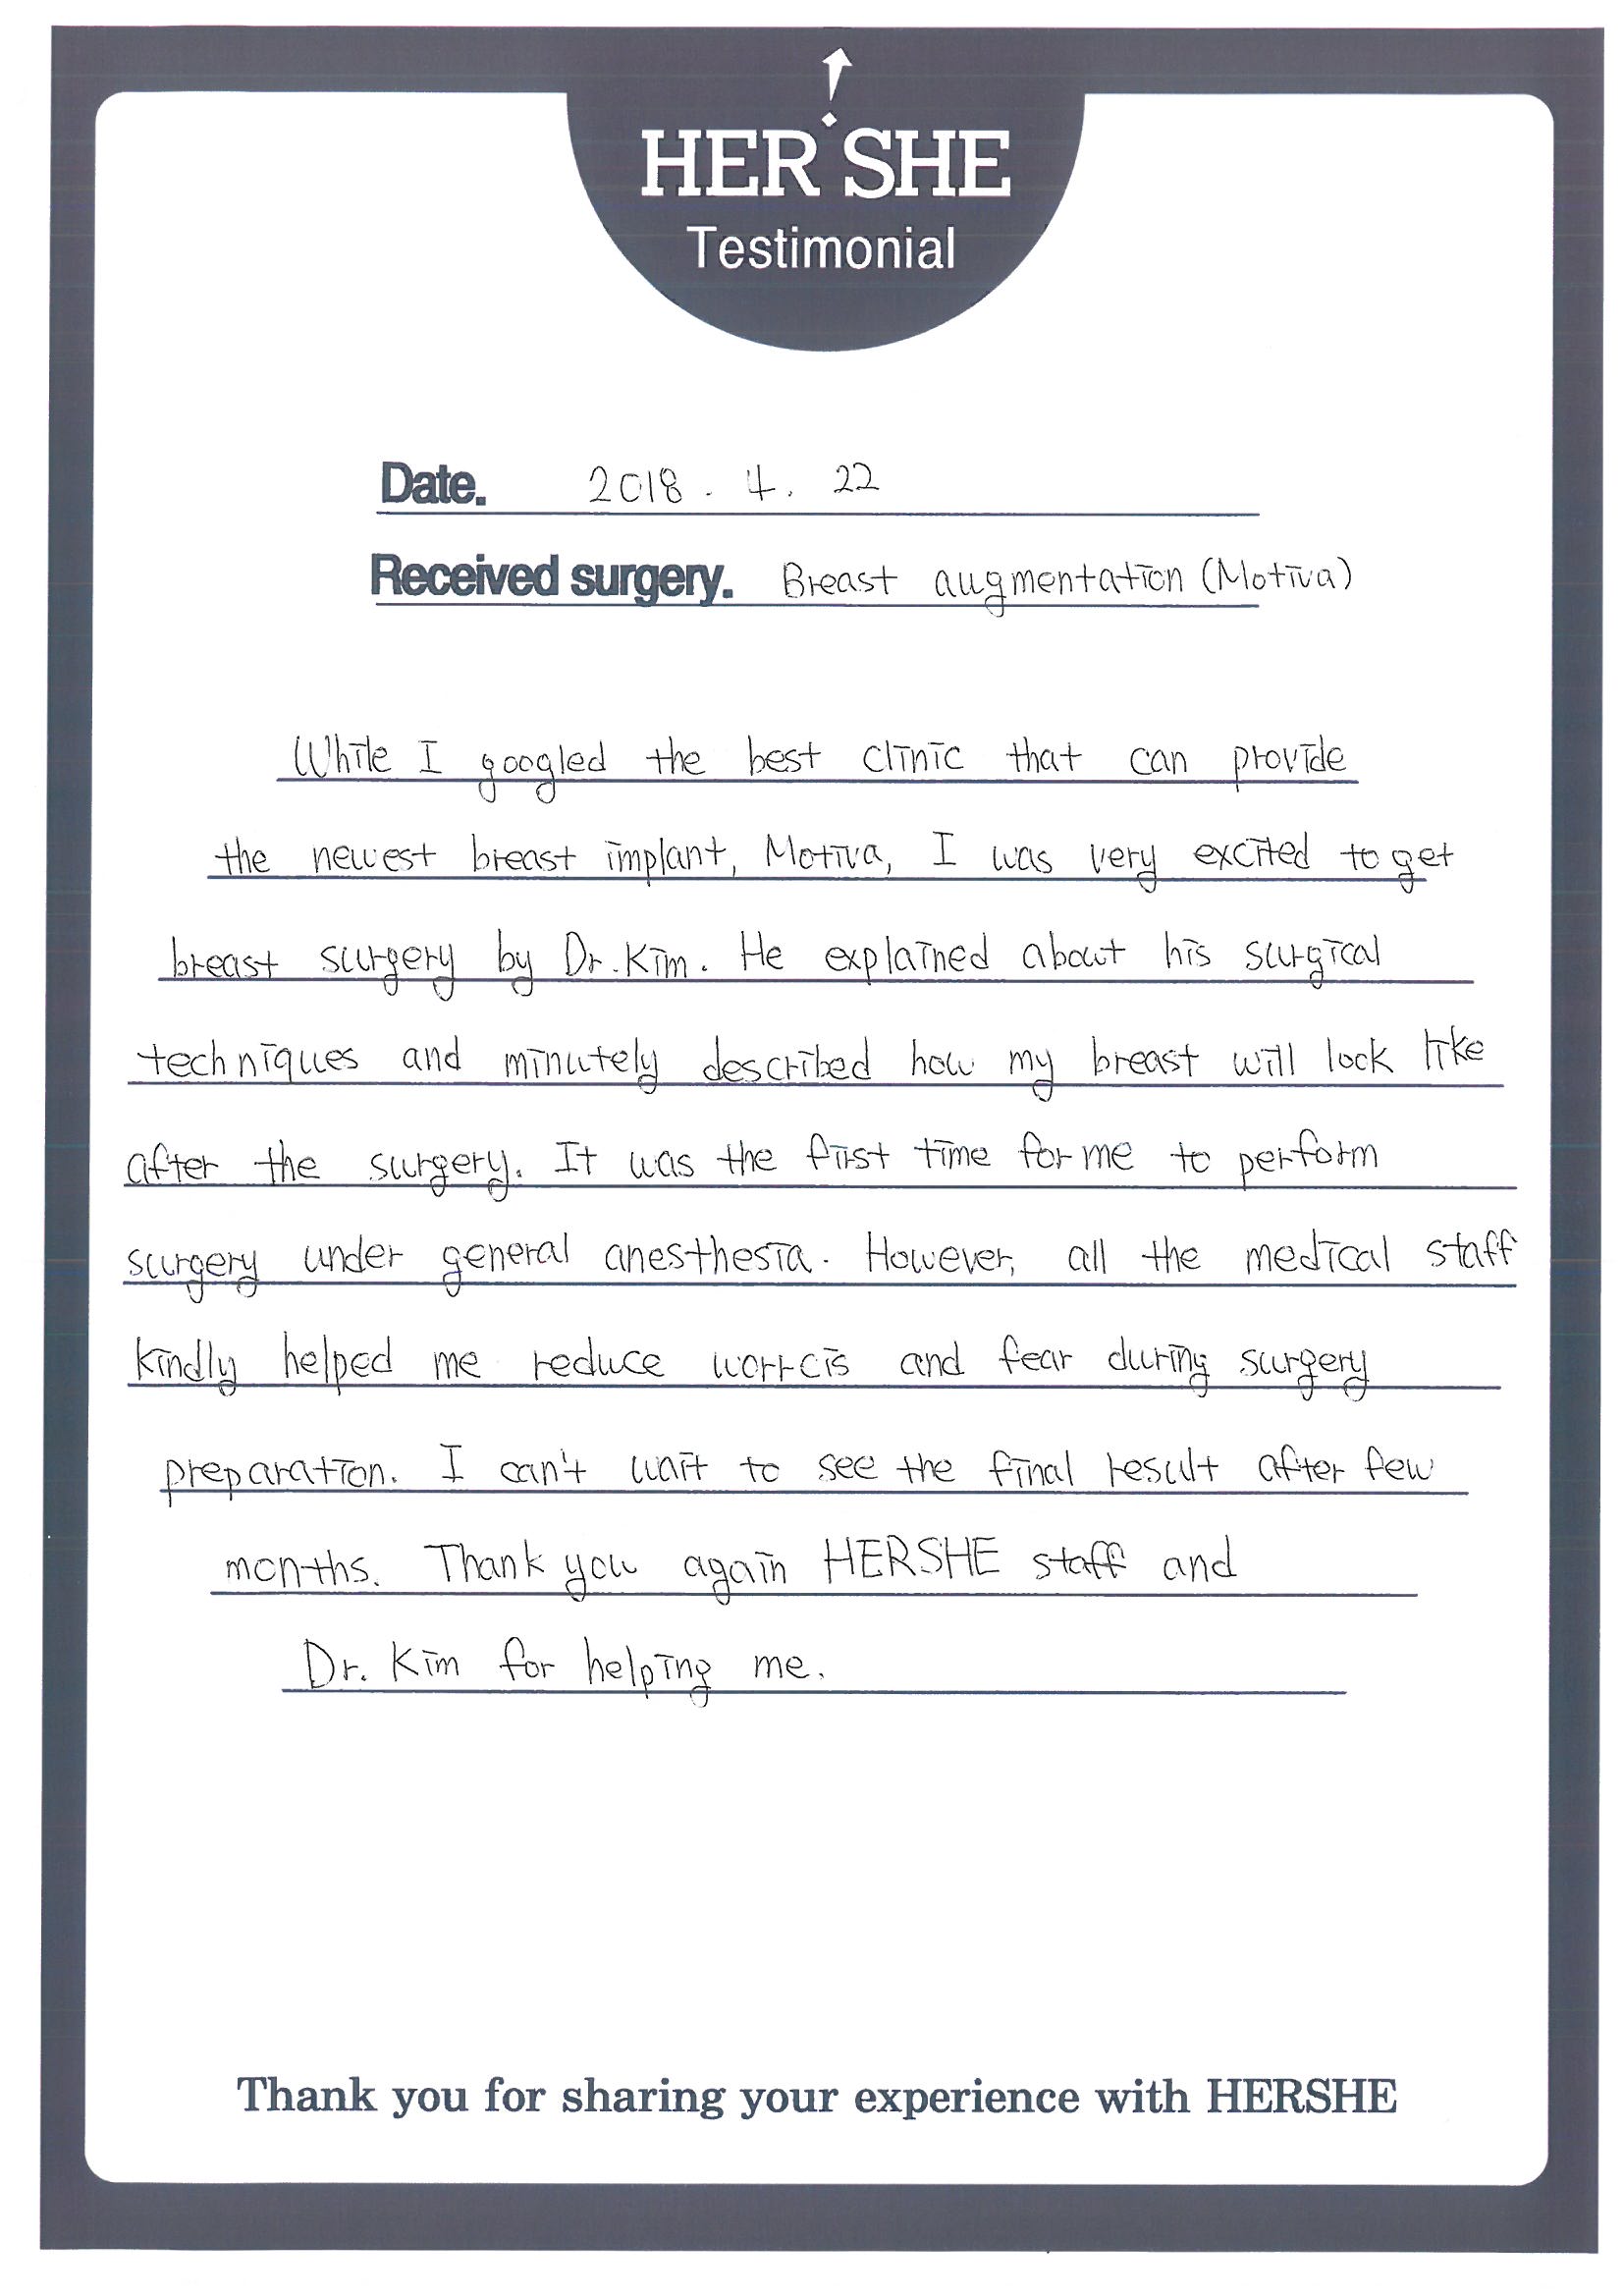 HER SHE
Testimonial
Date. 2018. 4. 22
Received surgery. Breast augmentation (Motiva)
While I googled the best clinic that can provide
the newest breast implant, Motiva, I was very excited to get
breast surgery by Dr. Kim. He explained about his surgical
techniques and minutely described how my breast will look like
after the surgery. It was the first time for me to perform
surgery under general anesthesia. However, all the medical staff
kindly helped me reduce and fear during surgery
preparation. I can't wait to see the final result after few
months. Thank you again HERSHE staff and
Dr. Kim for helping me.
Thank you for sharing your experience with HERSHE